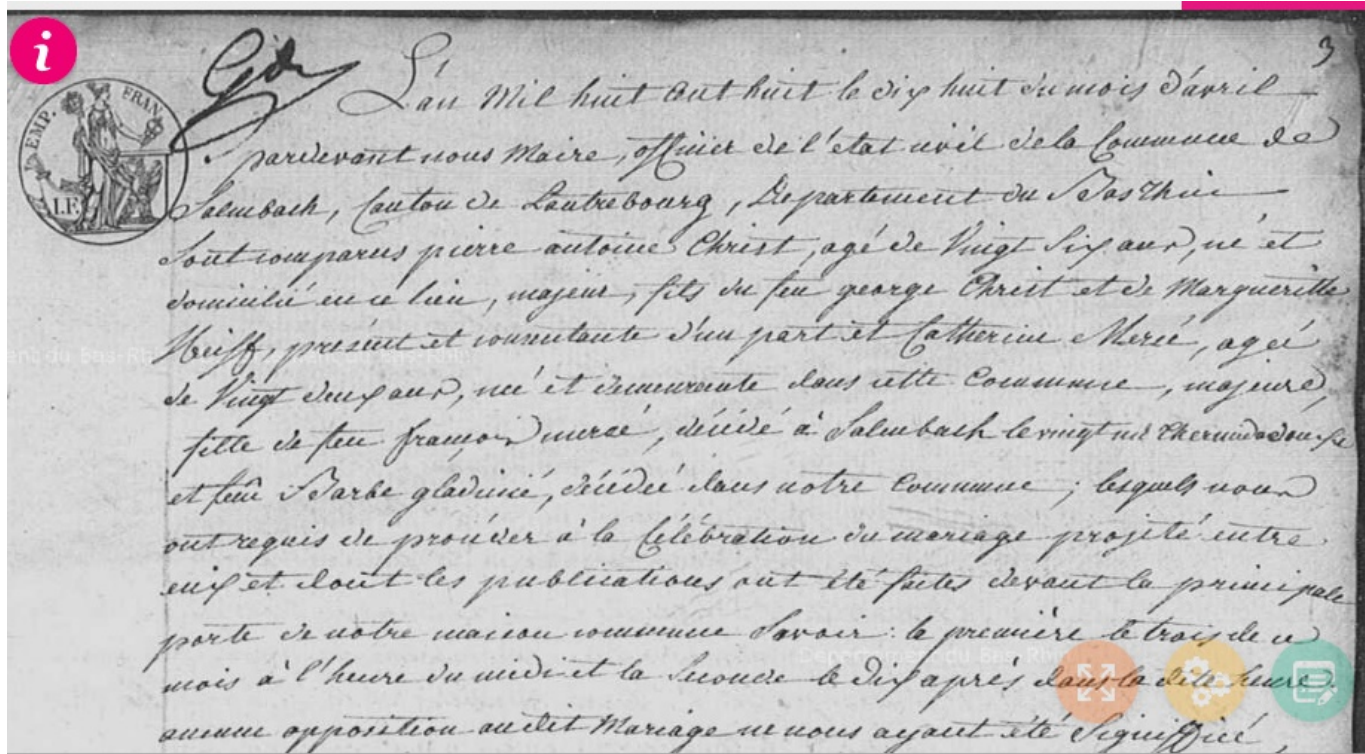 3
L'an Mil huit Cent huit le dix huit du mois d'avril
pardevant nous Maire, officier de l'état civil de la Commune de
Salmbach, Canton de Lautrebourg, Departement du Bas Rhin
Sont comparus pierre antoine Christ, agé de Vingt Six ans, né et
domicilié en ce lieu, majeur, fils du feu george Christ et de Margueritte
present et consentante d'une part et Catherine Mercé, agéé
de Vingt deux ans, né et demeurante dans cette Commune, majeure,
fille de feu françois mercé, décédé à Salmbach le vingt
et feue Barbe décédée dans notre Commune ; lesquels nous
ont requis de procéder à la Célébration du mariage projeté entre
eux et dont les publications ont été faites devant la principale
porte de notre maison commune Savoir : la première le trois de ce
mois à l'heure du midi et la Seconde le dix après dans la dite heure.
aucune opposition audit Mariage ne nous ayant été Signiffiée
EMP. FRAN
I.F.